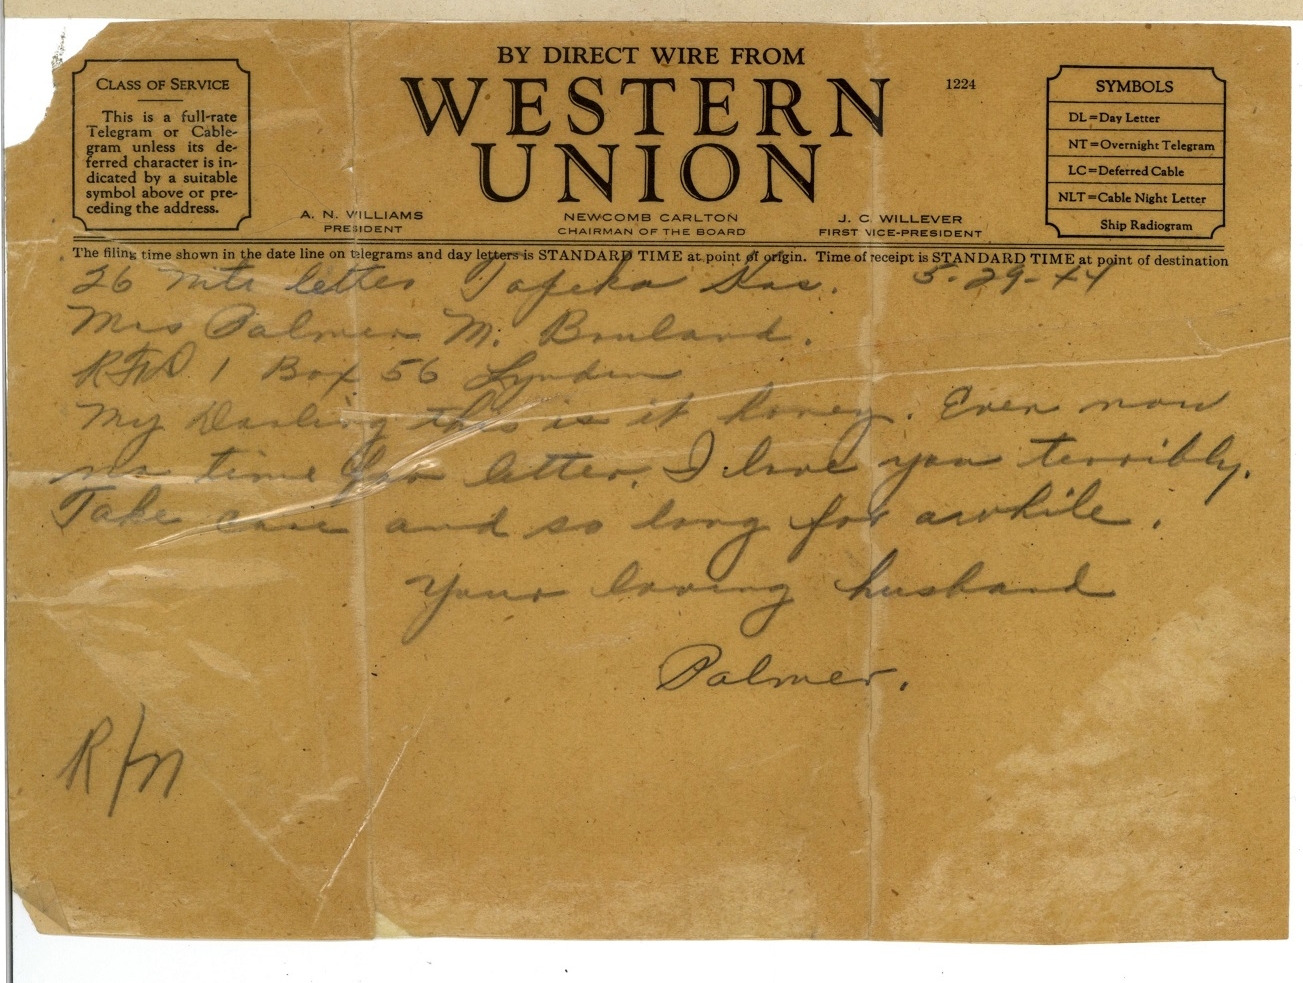 BY DIRECT WIRE FROM
WESTERN
UNION
1224
CLASS OF SERVICE
This is a full-rate
Telegram or Cable-
gram unless its de-
ferred character is in-
dicated by a suitable
symbol above or pre-
ceding the address.
SYMBOLS
DL=Day Letter
NT=Overnight Telegram
LC=Deferred Cable
NLT=Cable Night Letter
Ship Radiogram
A. N. WILLIAMS
PRESIDENT
NEWCOMB CARLTON
CHAIRMAN OF THE BOARD
J. C. WILLEVER
FIRST VICE-PRESIDENT
The filing time shown in the date line on telegrams and day letters is STANDARD TIME at point of origin. Time of receipt is STANDARD TIME at point of destination
26 Nite letter Topeka Kas. 5-29-44
Mrs Palmer M. Bruland.
RFD 1 Box 56 Lynden
My Darling this is it honey. Even now
no time for letter. I love you terribly.
Take care and so long for awhile.
Your loving husband
Palmer.
R/m